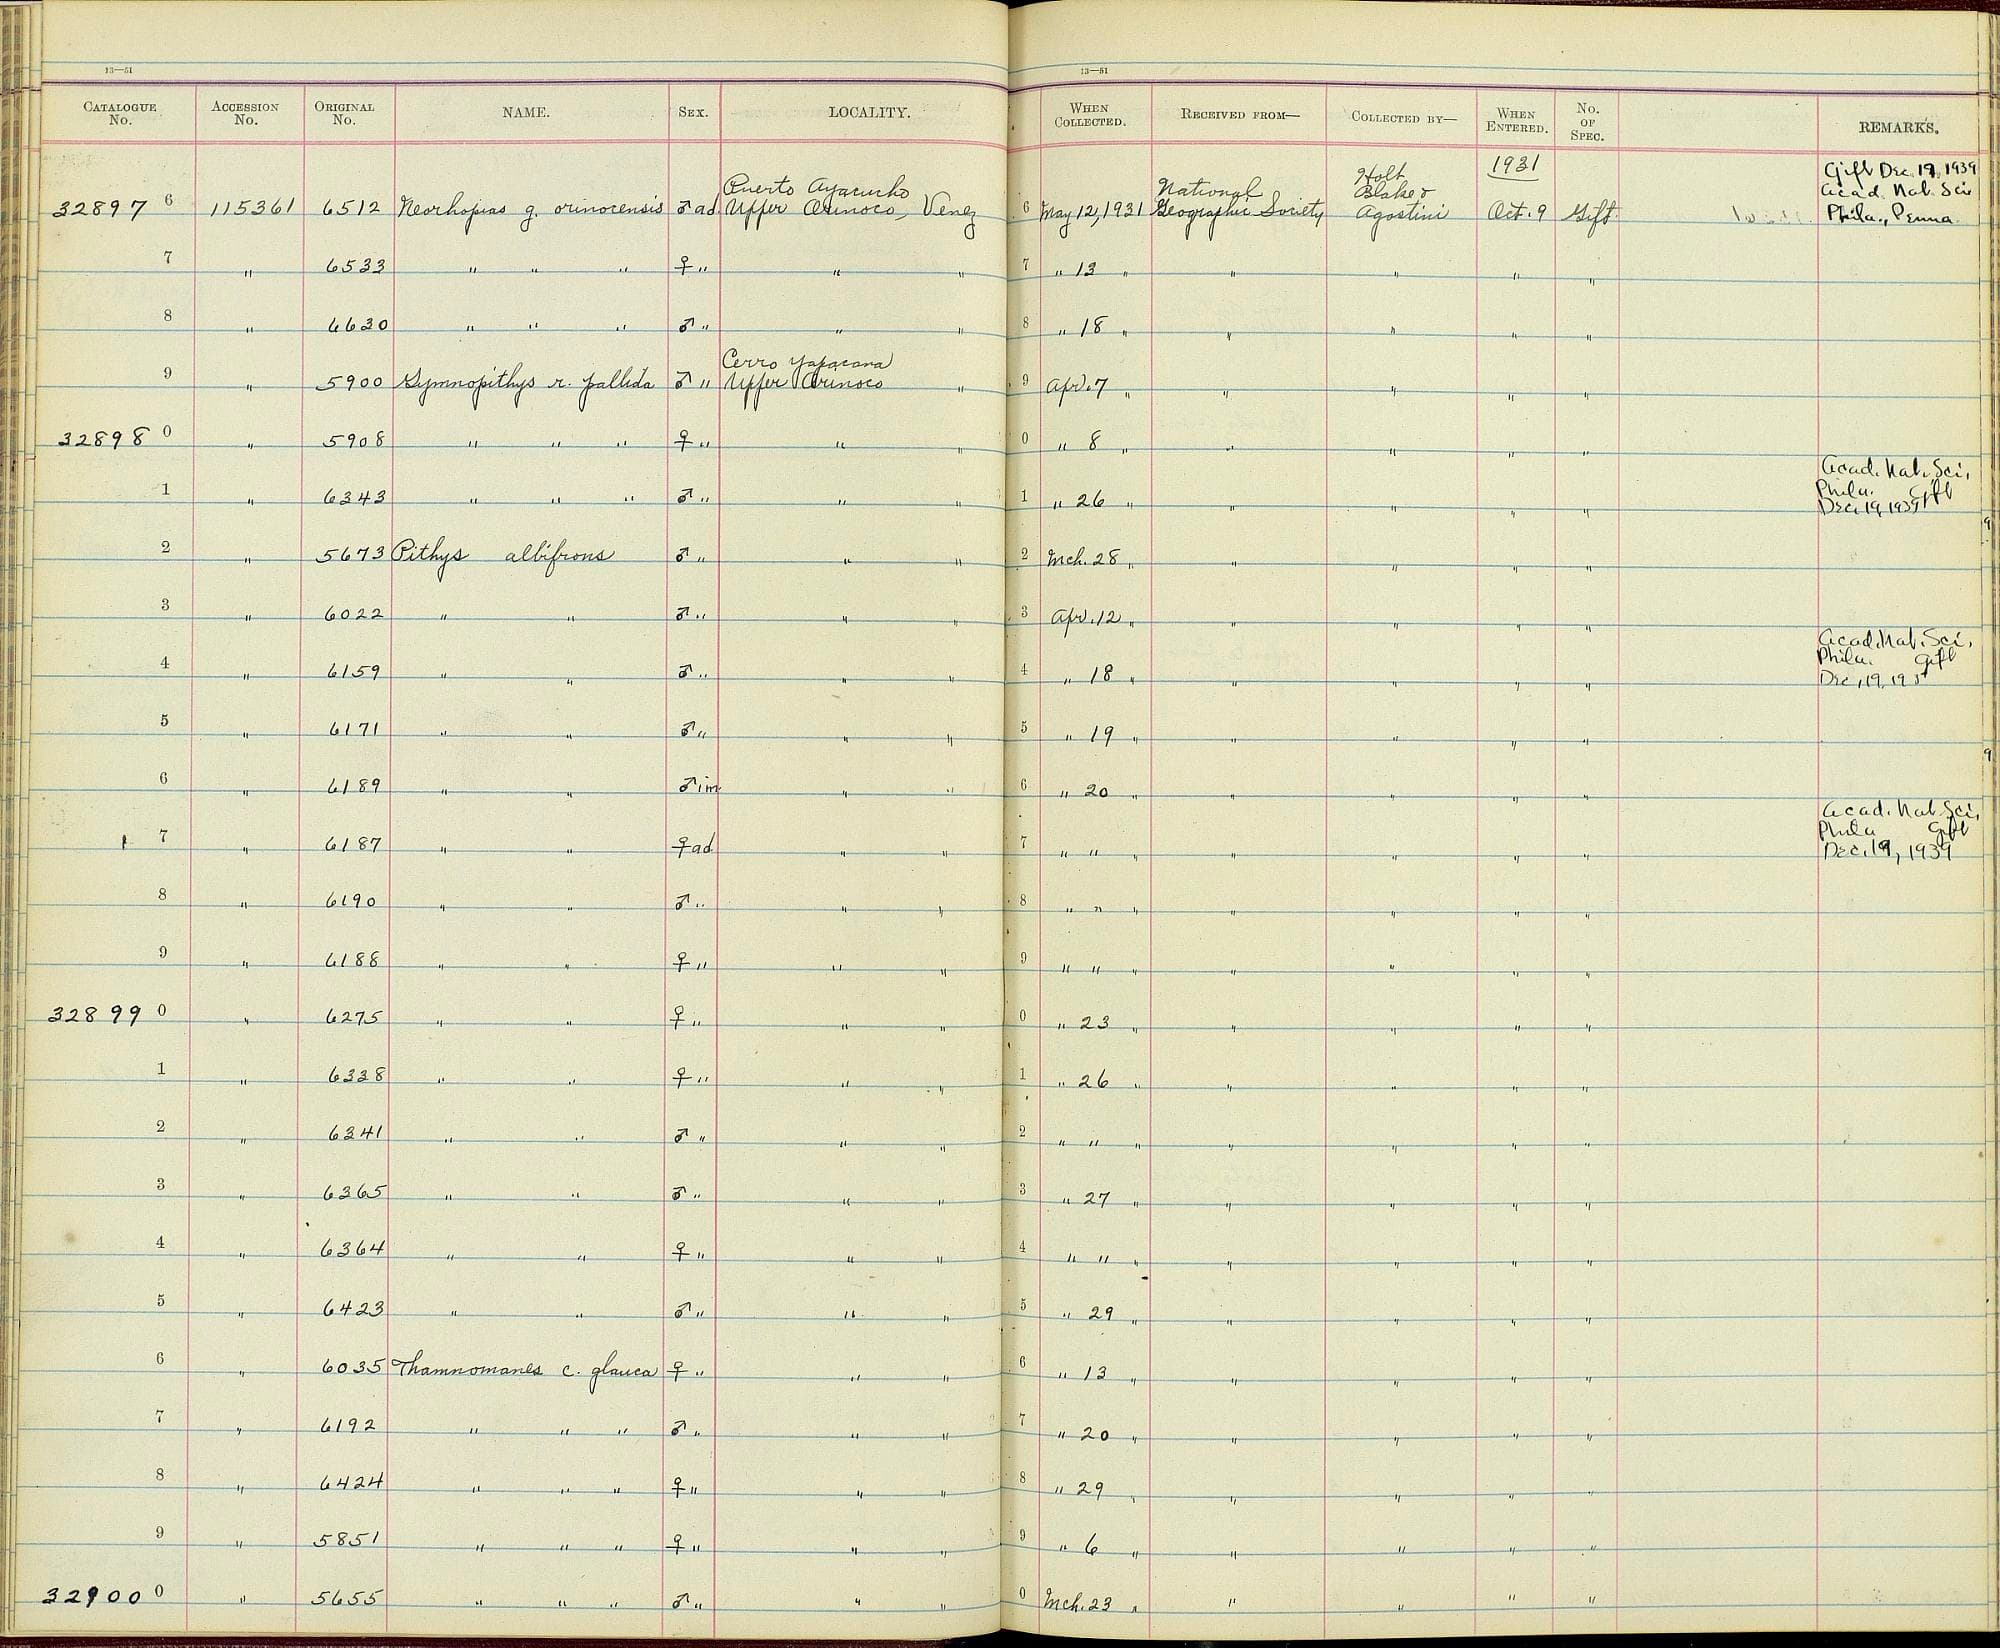 13—51
13—51
CATALOGUE No. ACCESSION No. ORIGINAL No. NAME. SEX. LOCALITY. WHEN COLLECTED. RECEIVED FROM— COLLECTED BY— WHEN ENTERED. No. OF SPEC. REMARKS.
1931
Puerto Ayacucho National Holt Blake & Gift Dec. 19, 1939 Acad. Nat. Sci
32897 6 115361 6512 Neorhopias g. orinocensis ♂ ad Upper Orinoco, Venez 6 May 12, 1931 Geographic Society Agostini Oct. 9 Gift Phila., Penna.
7 " 6533 " " " ♀ " " " 7 " 13 " " " " "
8 " 6630 " " " ♂ " " " 8 " 18 " " " " "
Cerro Yapacana
9 " 5900 Gymnopithys r. pallida ♂ " Upper Orinoco " 9 Apr. 7 " " " " "
32898 0 " 5908 " " " ♀ " " " 0 " 8 " " " " "
Acad. Nat. Sci,
1 " 6343 " " " ♂ " " " 1 " 26 " " " " " Phila. Gift
Dec. 19, 1939
2 " 5673 Pithys albifrons ♂ " " " 2 Mch. 28 " " " " "
3 " 6022 " " ♂ " " " 3 Apr. 12 " " " " "
Acad. Nat. Sci,
4 " 6159 " " ♂ " " " 4 " 18 " " " " " Phila. Gift
Dec, 19, 193
5 " 6171 " " ♂ " " " 5 " 19 " " " " "
6 " 6189 " " ♂ im " " 6 " 20 " " " " "
Acad. Nat Sci,
7 " 6187 " " ♀ ad " " 7 " " " " " " " Phila Gift
Dec. 19, 1939
8 " 6190 " " ♂ " " " 8 " " " " " " "
9 " 6188 " " ♀ " " " 9 " " " " " " "
32899 0 " 6275 " " ♀ " " " 0 " 23 " " " " "
1 " 6338 " " ♀ " " " 1 " 26 " " " " "
2 " 6341 " " ♂ " " " 2 " " " " " " "
3 " 6365 " " ♂ " " " 3 " 27 " " " " "
4 " 6364 " " ♀ " " " 4 " " " " " " "
5 " 6423 " " ♂ " " " 5 " 29 " " " " "
6 " 6035 Thamnomanes c. glauca ♀ " " " 6 " 13 " " " " "
7 " 6192 " " " ♂ " " " 7 " 20 " " " " "
8 " 6424 " " " ♀ " " " 8 " 29 " " " " "
9 " 5851 " " " ♀ " " " 9 " 6 " " " " "
32900 0 " 5655 " " " ♂ " " " 0 Mch. 23 " " " " "